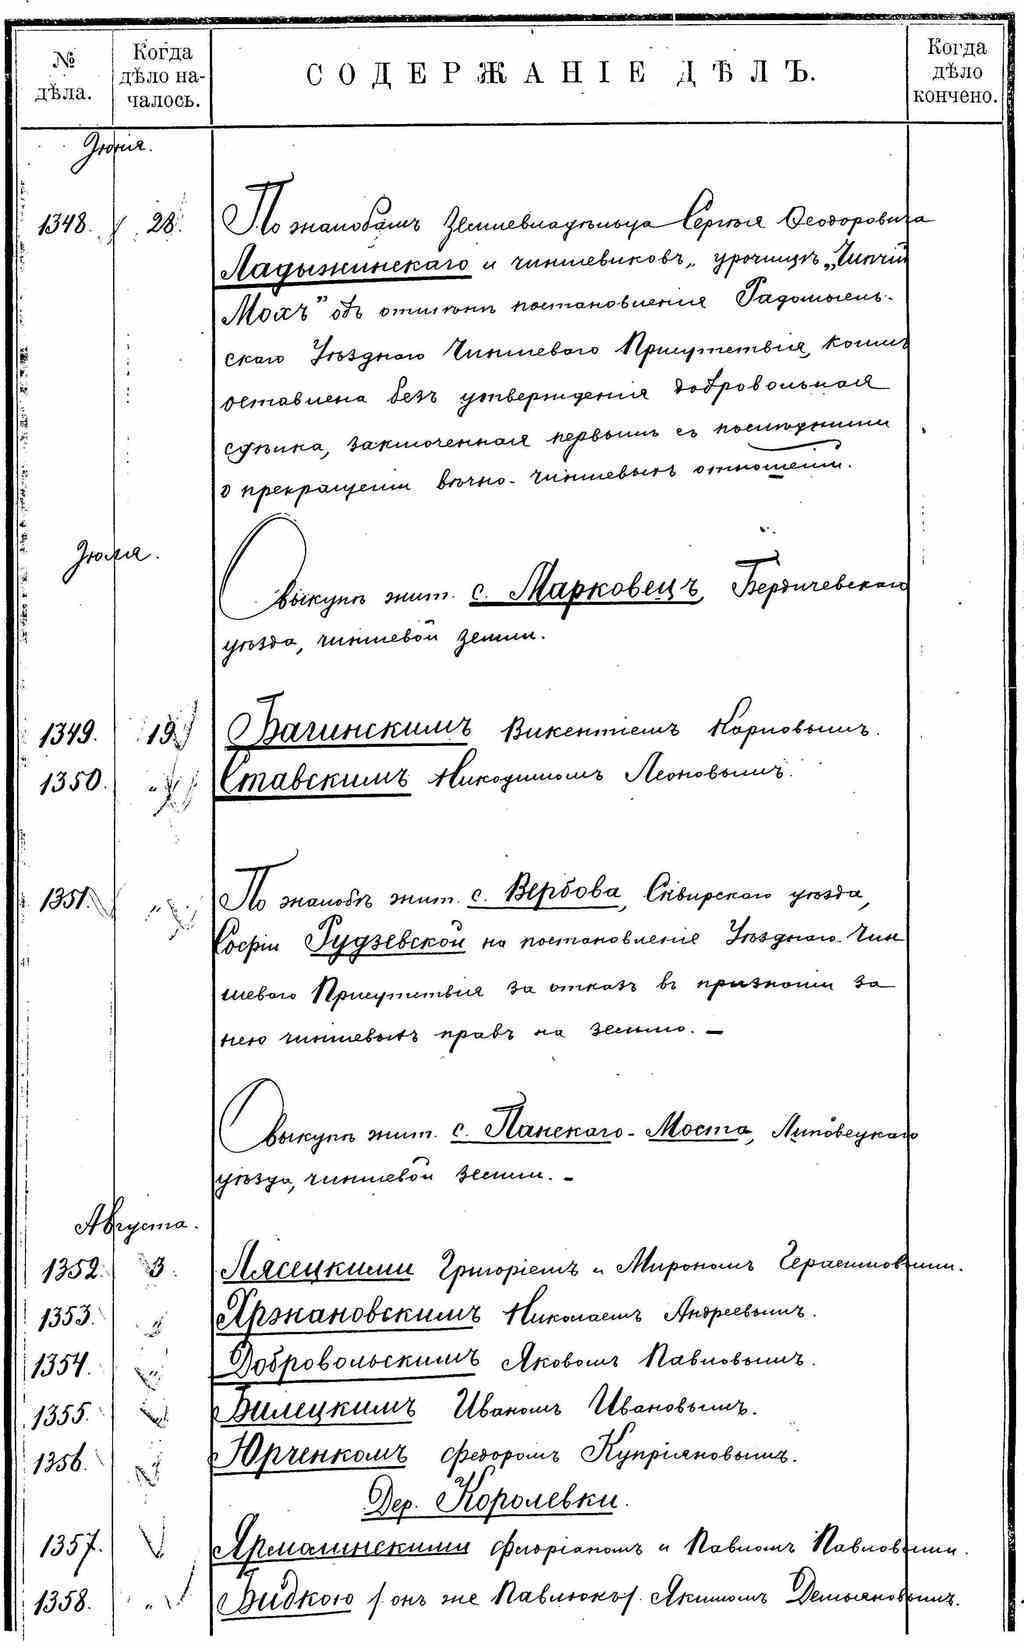 № дѣла. Когда дѣло началось. СОДЕРЖАНІЕ ДѢЛЪ. Когда дѣло кончено.
Іюня.
1348. 28. По жалобамъ землевладѣльца Сергѣя Ѳеодоровича
Ладыжинскаго и чиншевиковъ, урочища „Чипчій
Мохъ" объ отмѣнѣ постановленія Радомысль-
скаго Уѣзднаго Чиншевого Присутствія, коимъ
оставлена безъ утвержденія добровольная
сдѣлка, заключенная первымъ съ послѣдними
о прекращеніи вѣчно-чиншевыхъ отношеній.
Іюля.
О выкупѣ жит. с. Марковецъ, Бердичевскаго
уѣзда, чиншевой земли.
1349. 19 Вагинскимъ Викентіемъ Карповымъ.
1350. " Ставскимъ Никодимомъ Леоновымъ.
1351. " По жалобѣ жит. с. Вербова, Сквирскаго уѣзда,
Софіи Рудзевской на постановленіе Уѣзднаго Чин
шевого Присутствія за отказъ въ признаніи за
нею чиншевыхъ правъ на землю. —
О выкупѣ жит. с. Панскаго-Моста, Липовецкаго
уѣзда, чиншевой земли. —
Августа.
1352. 3. Лясецкими Григоріемъ и Мирономъ Герасимовыми.
1353. " Хржановскимъ Николаемъ Андреевымъ.
1354. " Добровольскимъ Яковомъ Павловымъ.
1355. " Билецкимъ Иваномъ Ивановымъ.
1356. " Юрченкомъ Федоромъ Купріяновымъ.
Дер. Королевки.
1357. " Ярмолинскими Флоріаномъ и Павломъ Павловыми.
1358. " Бидкою /онъ же Павлюкъ/ Якимомъ Демьяновымъ.